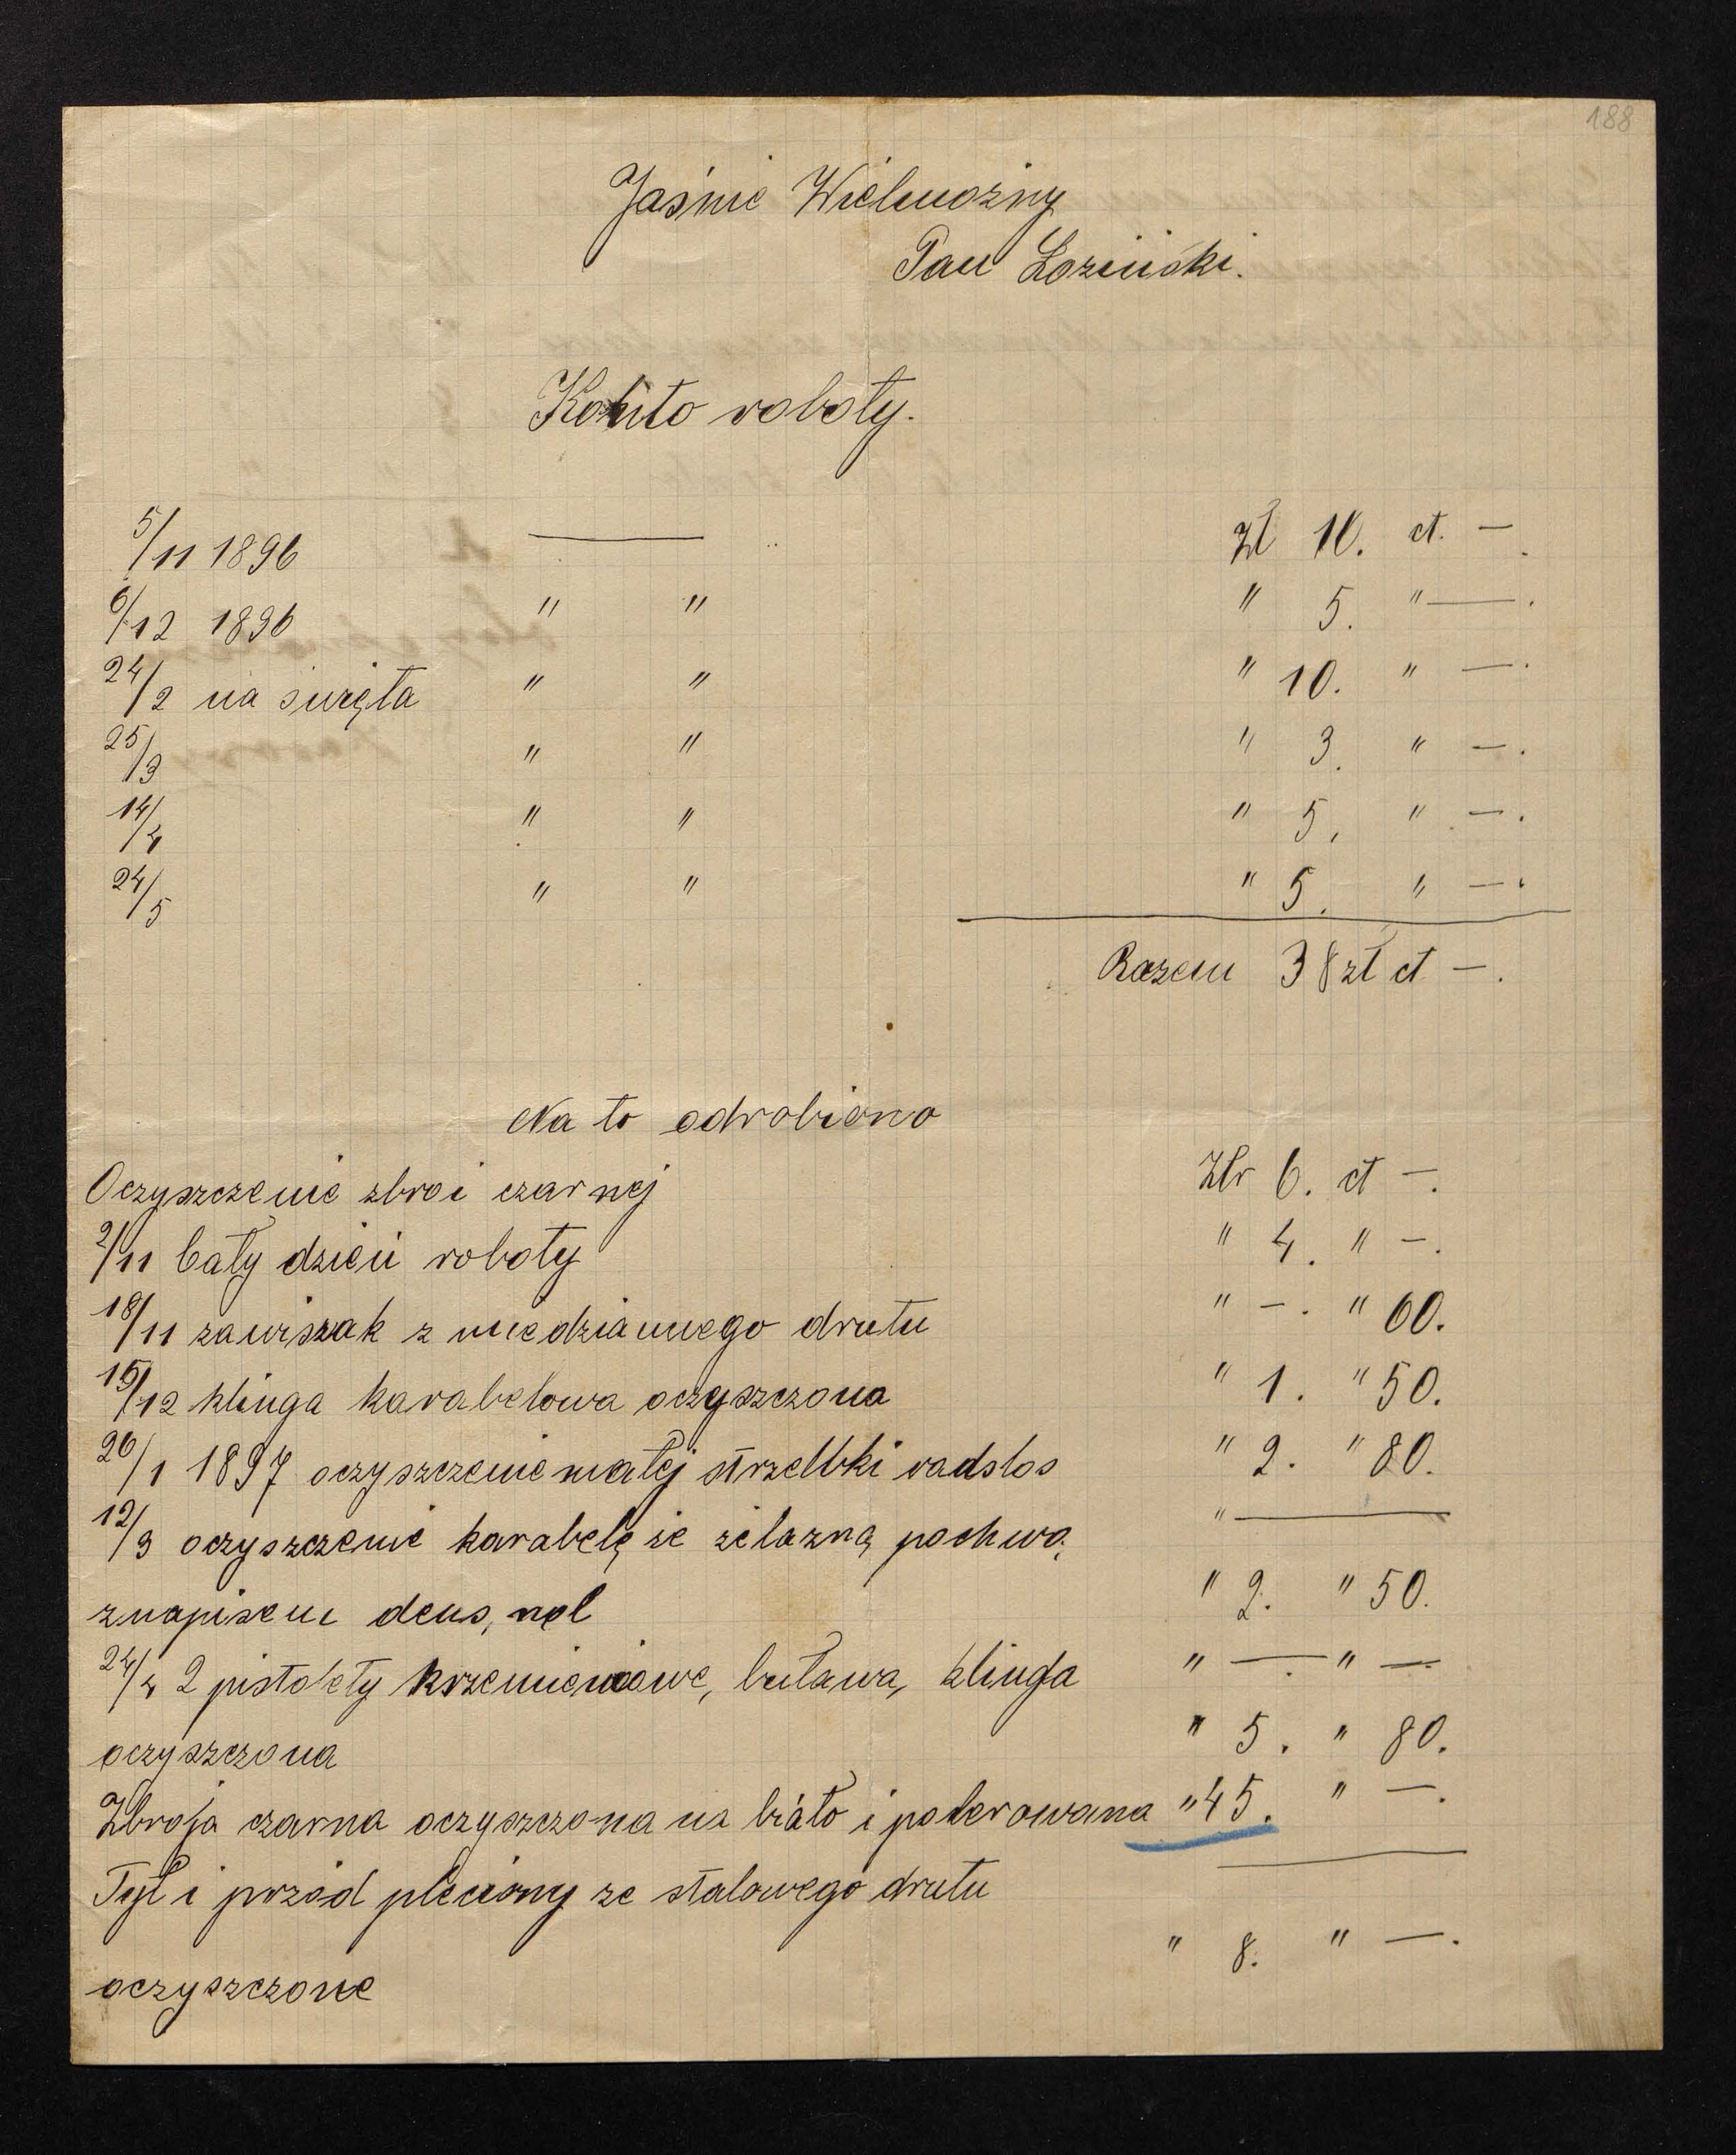 188
Jaśnie Wielmożny
Pan Łoziński.
Konto roboty.
5/11 1896 — Zł 10. ct. —.
6/12 1896 " " " 5. " —.
24/2 na święta " " " 10. " —.
25/3 " " " 3. " —.
14/4 " " " 5. " —.
24/5 " " " 5. " —.
Razem 38 zł ct —.
Na to odrobiono
Oczyszczenie zbroi czarnej Złr 6. ct —.
2/11 Cały dzień roboty " 4. " —.
18/11 zawiszak z miedziannego drutu " —. " 60.
15/12 klinga karabelowa oczyszczona " 1. " 50.
26/1 1897 oczyszczenie małej strzelbki radslos " 2. " 80.
12/3 oczyszczenie karabelę ze żelazną pochwą " —
znapisem deus, " 2. " 50.
24/4 2 pistolety krzemieniowe, buława, klinga " —. " —
oczyszczona " 5. " 80.
Zbroja czarna oczyszczona na biało i polerowana " 45. " —.
Tył i przód pleciony ze stalowego drutu
oczyszczone " 8. " —.